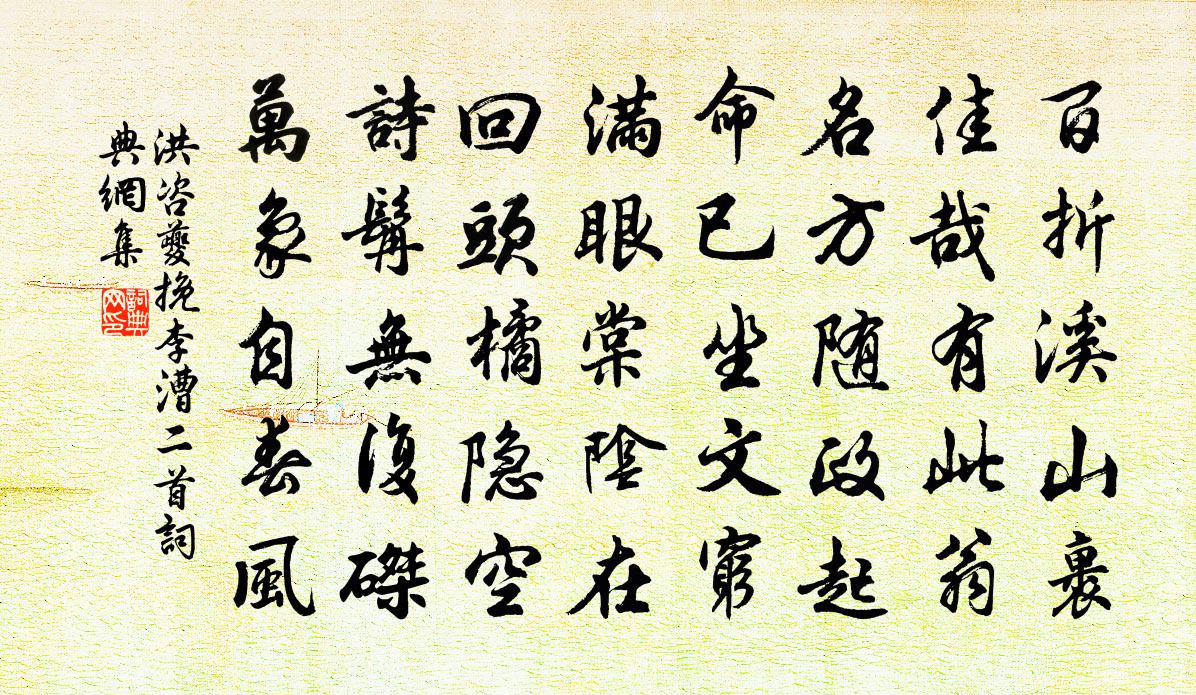 百折溪山裹
佳哉有此翁
名方随政起
命已坐文窮
滿眼棠陰在
回頭橘隐空
詩髯無復磔
萬象自春風
洪咨夔挽李漕二首詞
典網集
詞典
网印